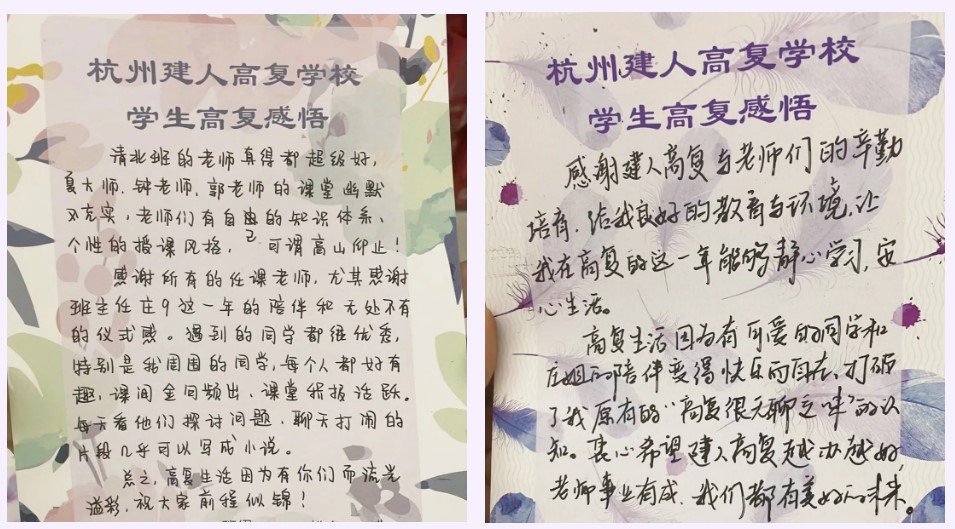 杭州建人高复学校
学生高复感悟
清北班的老师真得都超级好,
夏大师、钟老师、郭老师的课堂幽默
又充实,老师们有自己的知识体系、
个性的授课风格,可谓高山仰止!
感谢所有的任课老师,尤其感谢
班主任庄9这一年的陪伴和无处不有
的仪式感。遇到的同学都很优秀,
特别是我周围的同学,每个人都好有
趣,课间金句频出、课堂积极活跃。
每天看他们探讨问题、聊天打闹的
片段几乎可以写成小说。
总之,高复生活因为有你们而流光
溢彩,祝大家前程似锦!
杭州建人高复学校
学生高复感悟
感谢建人高复与老师们的辛勤
培育,给我良好的教育与环境,让
我在高复的这一年能够静心学习,安
心生活。
高复生活因为有可爱的同学和
庄姐的陪伴变得快乐而自在,打破
了我原有的“高复很无聊乏味”的认
知。衷心希望建人高复越办越好,
老师事业有成,我们都有美好的未来。